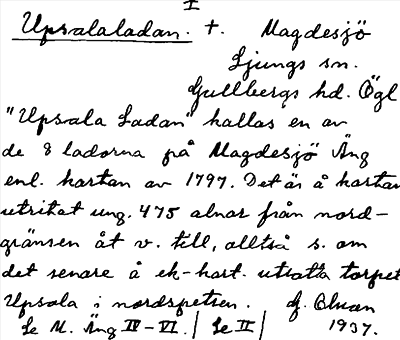 I
Upsalaladan. +. Magdesjö
Ljungs sn.
Gullbergs hd. Ögl
"Upsala Ladan" kallas en av
de 8 ladorna på Magdesjö Äng
enl. kartan av 1797. Det är å kartan
utritat ung. 475 alnar från nord-
gränsen åt v. till, alltså s. om
det senare å ek-kart. utsatta torpet
Upsala i nordspetsen.
Se M. Äng IV-VI. | Se II | 1937.